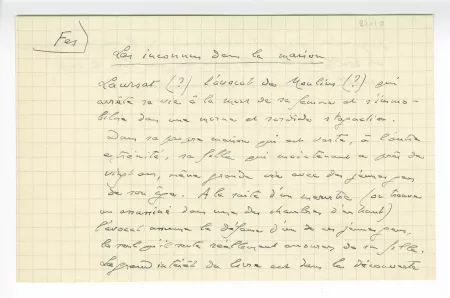 Fes)
Les inconnus dans la maison
Loursat (?) l'avocat des Moulins (?) qui
arrête sa vie à la mort de sa femme et s'immo-
bilise dans une morne et sordide stagnation.
Dans sa propre maison qui est vaste, à l'autre
extrémité, sa fille qui maintenant a près de
vingt ans, mène grande vie avec des jeunes gens
de son âge. A la suite d'un meurtre (on trouve
un assassiné dans une des chambres d'en haut)
l'avocat assume la défense d'un de ces jeunes gens,
le seul qui soit réellement amoureux de sa fille.
Le grand intérêt du livre est dans la découverte